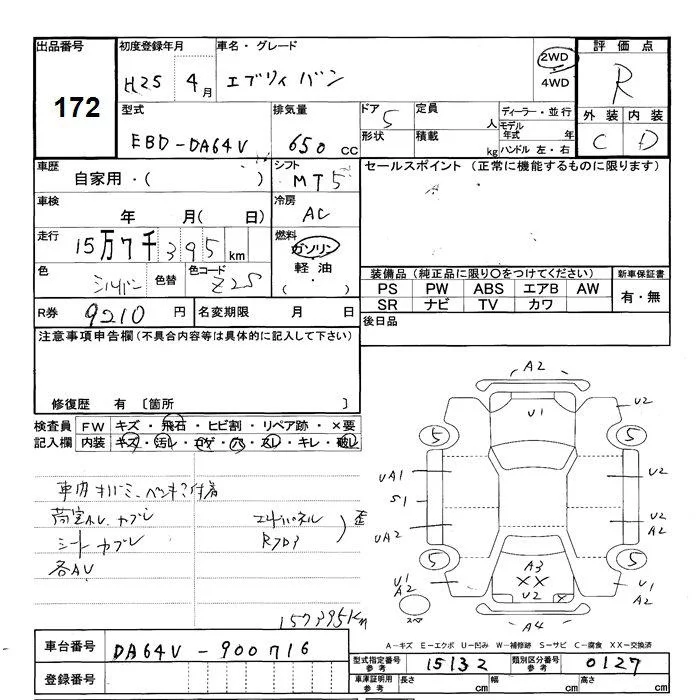 出品番号 初度登録年月 車名・グレード 2WD 4WD 評価点
172 H25 4月 エブリイ バン R
型式 排気量 ドア 5 定員 人 ディーラー・並行 外装 内装
EBD-DA64V 650 cc 形状 積載 kg モデル年式 年 ハンドル 左・右 C D
車歴 シフト セールスポイント (正常に機能するものに限ります)
自家用・( ) MT5
車検 冷房
年 月( 日) AC
走行 燃料
15万7千395km ガソリン
色 色替 色コード 軽油
シルバー Z2S ( ・ )
装備品 (純正品に限り○をつけてください) 新車保証書
PS PW ABS エアB AW 有・無
SR ナビ TV カワ
R券 9210 円 名変期限 月 日 後日品
注意事項申告欄(不具合内容等は具体的に記入して下さい)
修復歴 有 〔箇所 〕
検査員 FW キズ・飛石・ヒビ割・リペア跡・×要
記入欄 内装 キズ・汚レ・コゲ・穴・スレ・キレ・破レ
シート カブレ
各AU
157395Km
A2
U1 U2
5 5
UA1 U2
S1
UA2 U2 A2
5 5
A3
XX
U2 X
U1 A2 U1 A2
A4
A-キズ E-エクボ U-凹み W-補修跡 S-サビ C-腐食 XX-交換済
車台番号 DA64V-900716
登録番号
型式指定番号 参考 15132 類別区分番号 参考 0127
車庫証明用 参考 長さ cm 幅 cm 高さ cm